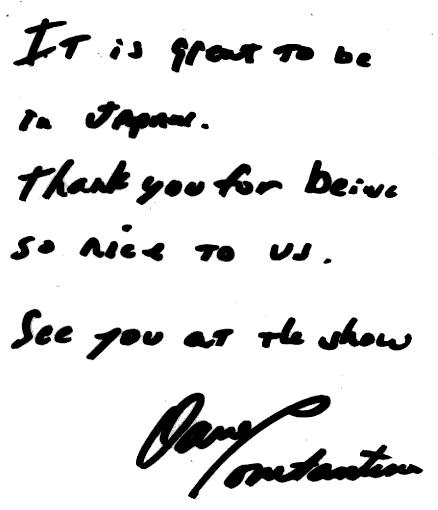 It is great to be
in Japan.
Thank you for being
so nice to us.
See you at the show
Constantine